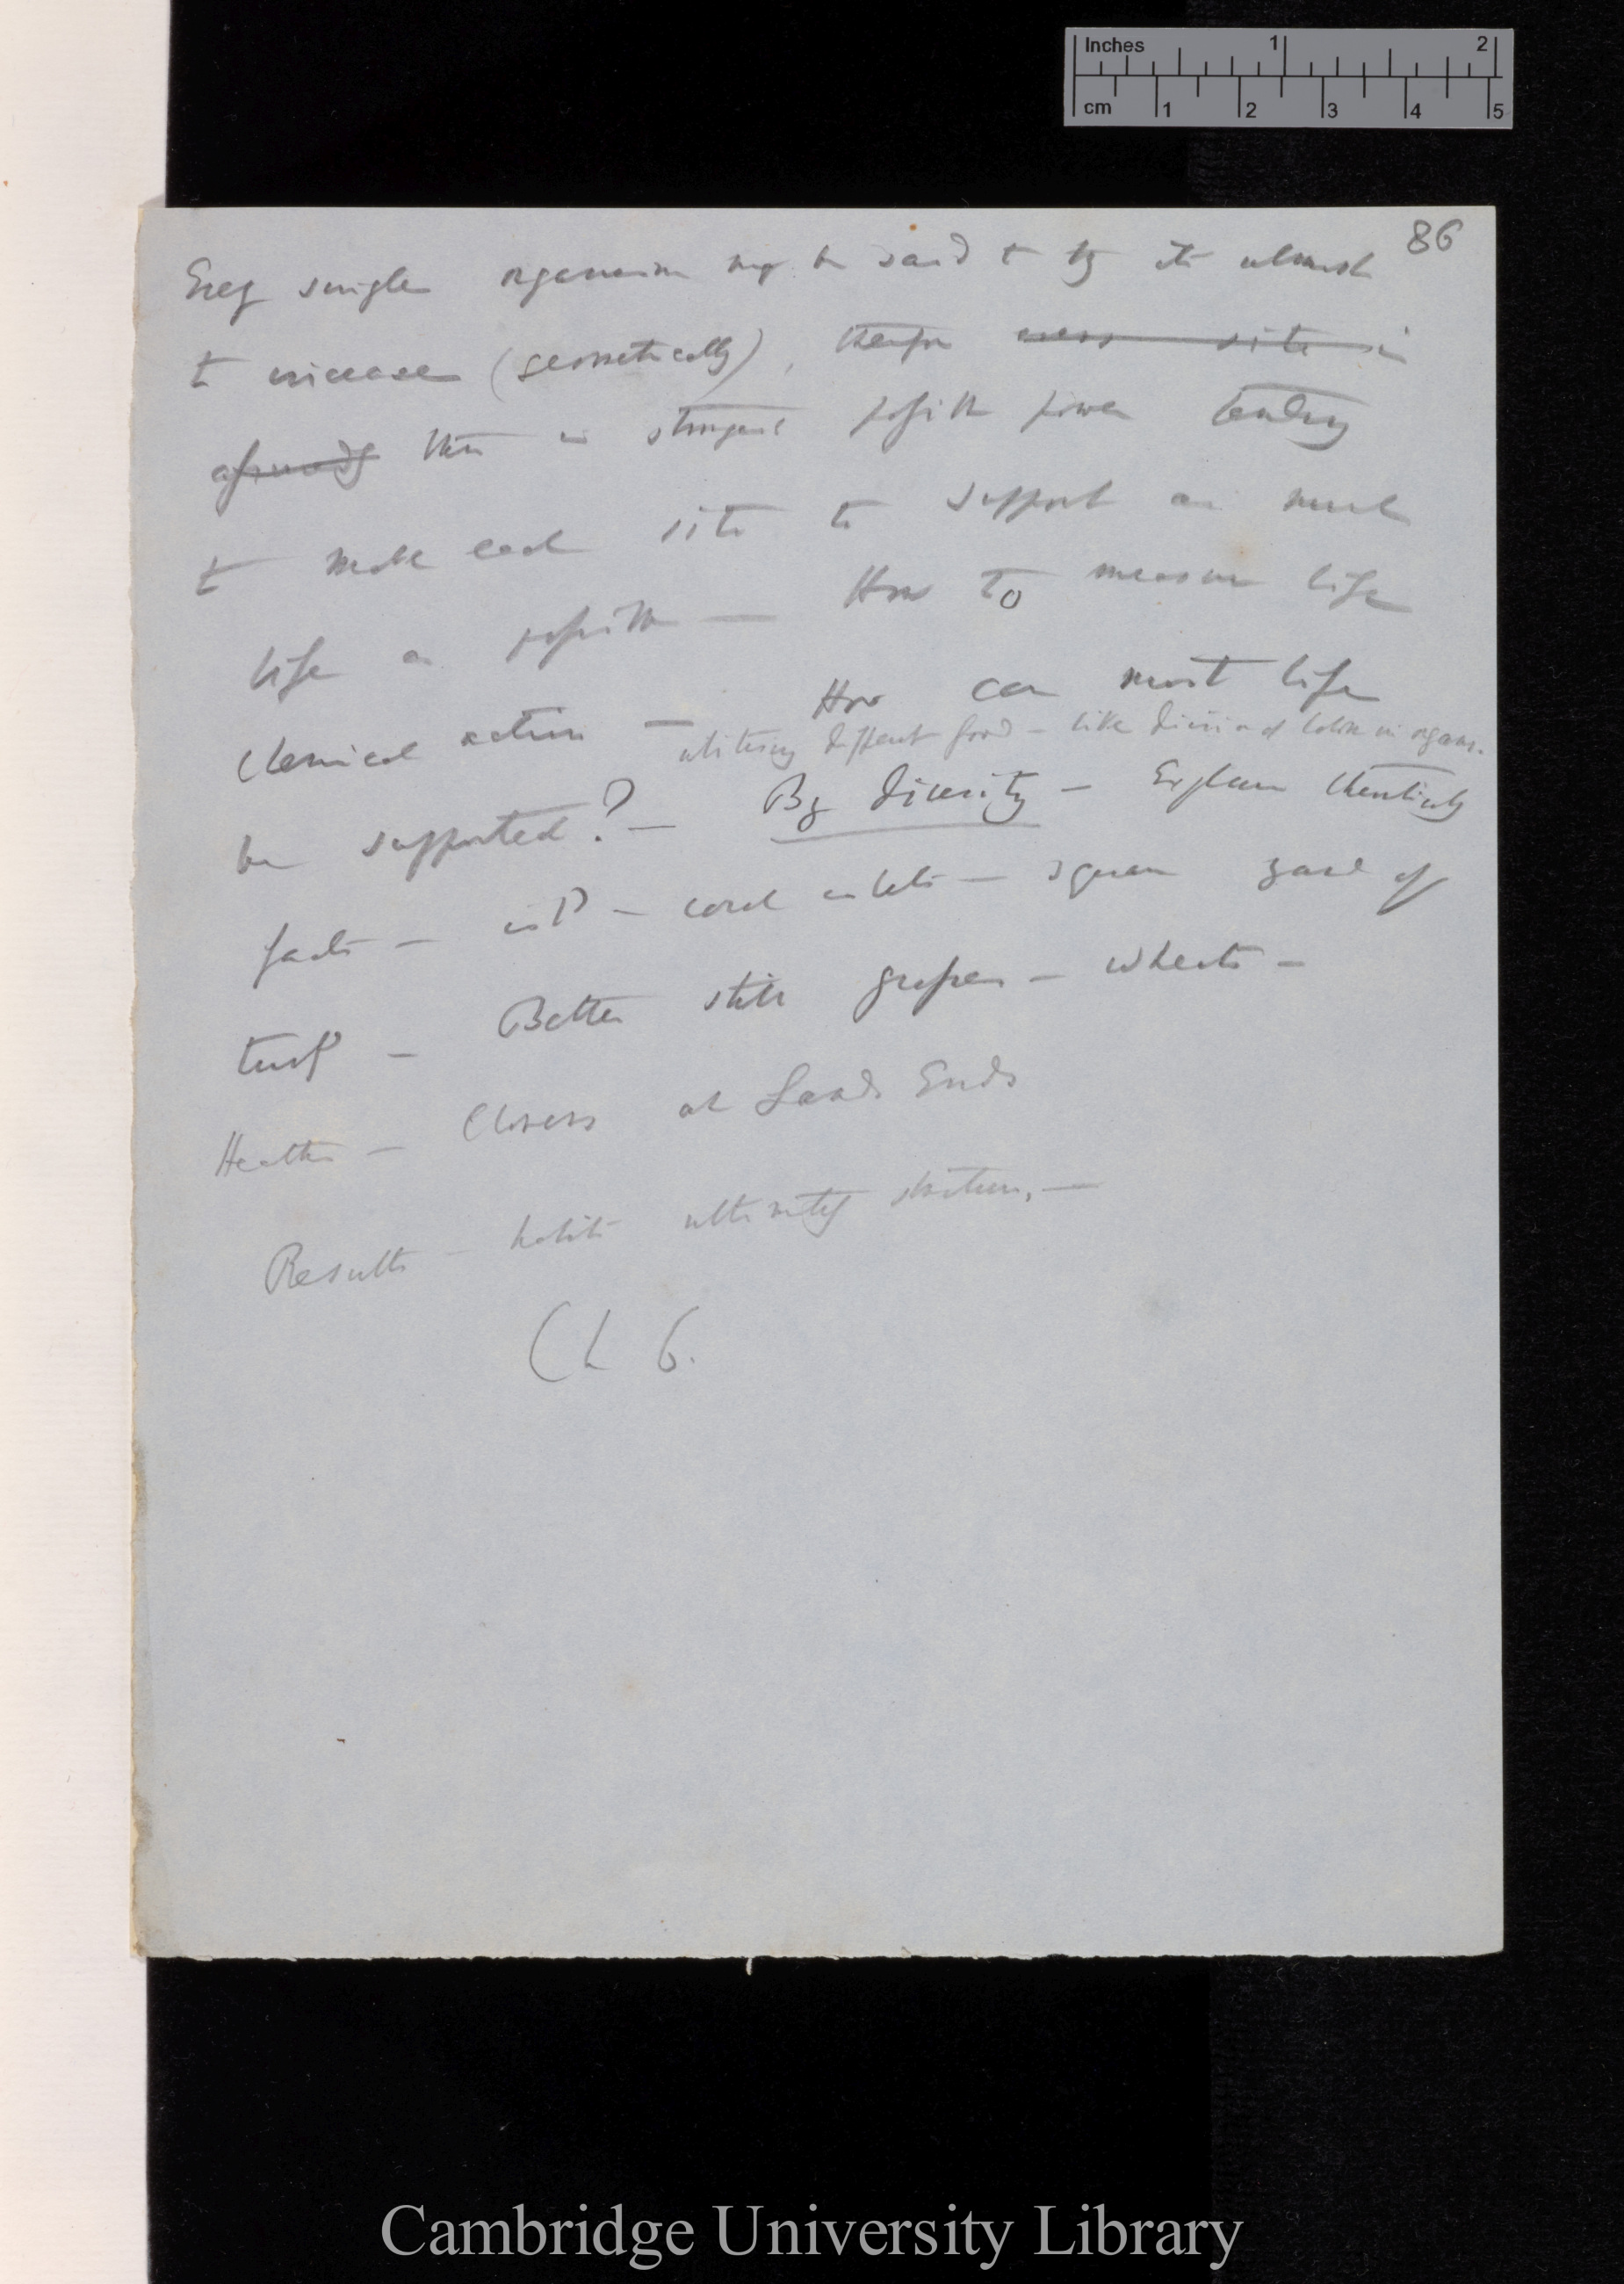 Inches 1 2
cm 1 2 3 4 5
86
Every single organism may be said to try its utmost
to increase (geometrically), therefore every site in
there is strongest possible power tending
to make each site to support as much
life as possible — How to measure life
chemical action — How can most life
utilising different food — like division of labour in organs.
be supported? — By diversity — Explain theoretically
facts — isld — coral islets — square yard of
turf — Better still grasses — wheats —
Heaths — Closess at Lands Ends
Results — habits ultimately structure, —
Ch 6.
Cambridge University Library